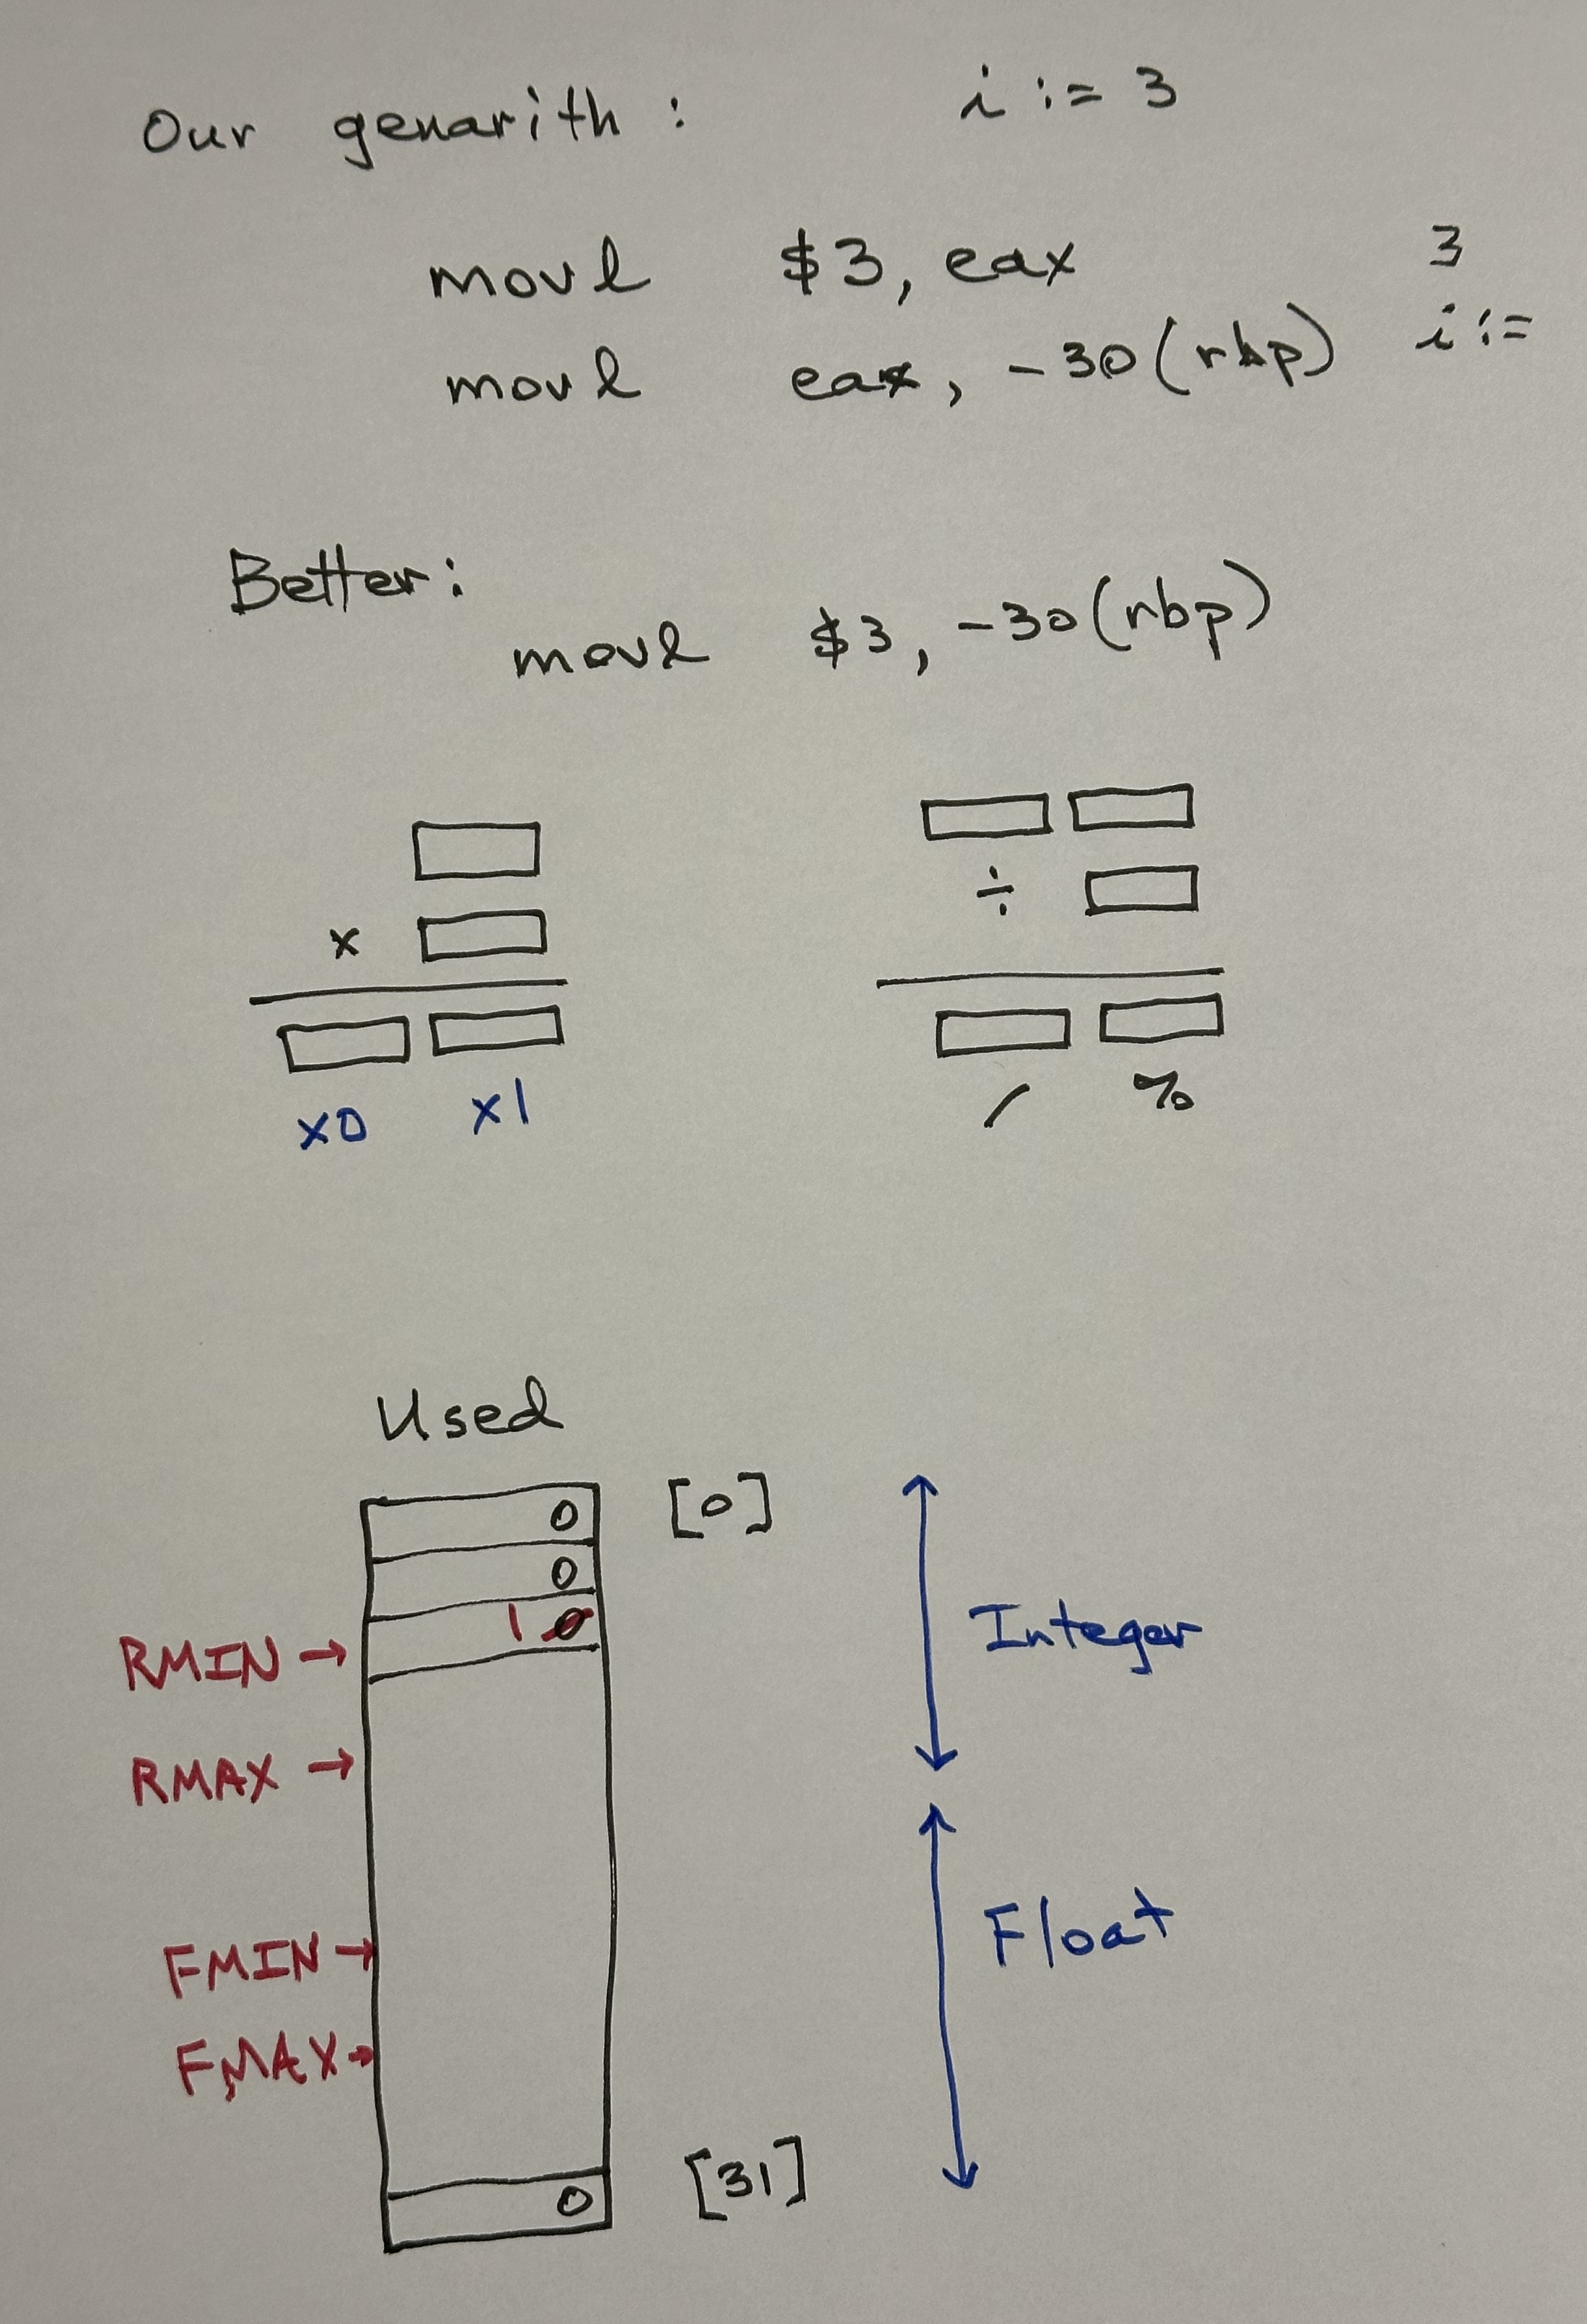 Our genarith :    i := 3
movl    $3, eax    3
movl    eax, -30(rbp)    i :=
Better:
movl    $3, -30(rbp)
÷
×
x0    x1    /    %
Used
0    [0]
0
1 0    Integer
RMIN →
RMAX →
Float
FMIN →
FMAX →
0    [31]